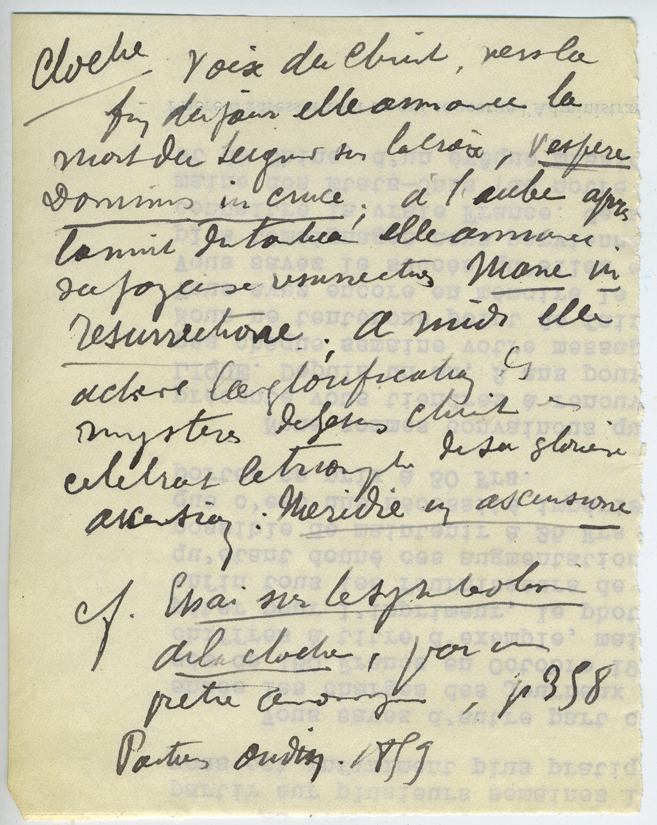 Cloche Voix du Christ, vers la
fin du jour elle annonce la
mort du Seigneur sur la croix, Vespere
Dominus in cruce ; à l'aube après
la nuit du tombeau elle annonce
sa joyeuse résurrection Mane in
resurrectione ; à midi elle
achève la glorification des
mystères de Jésus Christ en
célébrant le triomphe de sa glorieuse
ascension : Meridie in ascensione
cf. Essai sur le symbolisme
de la cloche, par un
prêtre anonyme, p 358
Poitiers Oudin. 1859